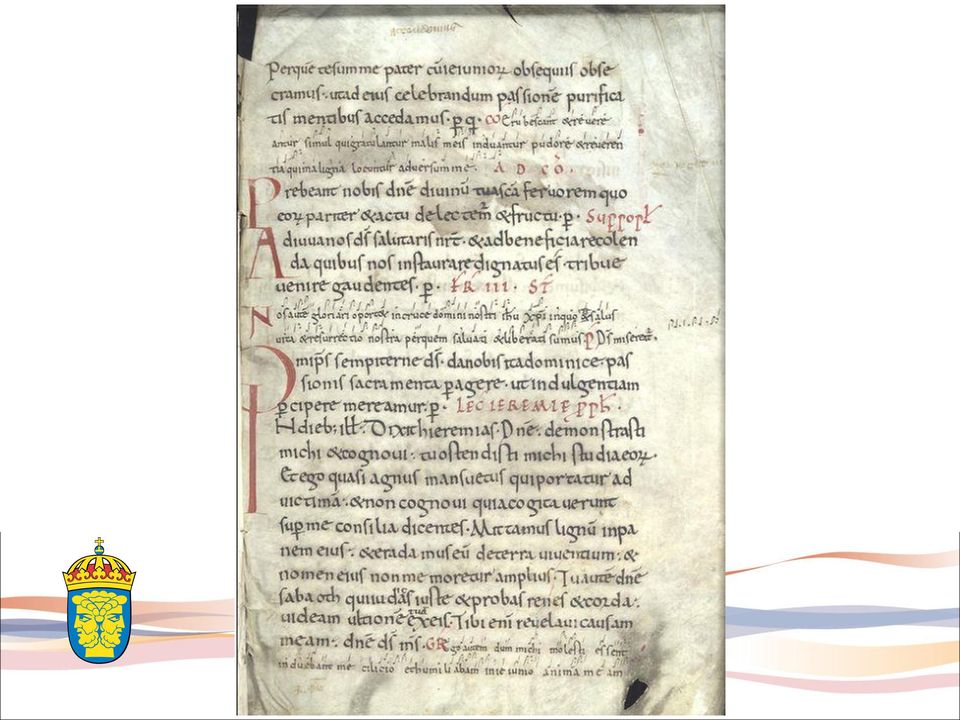 Perquē tesummе pater cū ieiunioꝝ obsequiis obse
cramus. ut ad eius celebrandum passionē purifica
tis mentibus accedamus. p̄ q̄. COM Erubescant & revere
antur simul qui gratulantur malis meis induantur pudore & reveren
tia qui maligna locuntur adversum me. AD CŌ.
Prebeant nobis dn̄e divinū tua sc̄a fervorem quo
eoꝝ pariter & actu delectem̄ & fructu. p̄. SUP POPŁ
Adiuva nos ds̄ salutaris nr̄t. & ad beneficia recolen
da quibus nos instaurare dignatus es. tribue
venire gaudentes. p̄. FR III. ST
Nos autē gloriari oport& in cruce domini nostri ih̄u xp̄i in quo & salus
vita & resurrectio nostra per quem salvati & liberati sumus. P Ds̄ misereat̄.
Omip̄s sempiterne ds̄. da nobis ita dominice pas
sionis sacramenta p̄agere. ut indulgentiam
p̄cipere mereamur. p̄. LEC IEREMIĘ PPH̄.
IN dieb; iłł. Dixit hieremias. Dn̄e. demonstrasti
michi & cognovi. tu ostendisti michi studia eoꝝ.
Et ego quasi agnus mansuetus qui portatur ad
victimā. & non cognovi quia cogitaverunt
sup̄ me consilia dicentes. Mittamus lignū in pa
nem eius. & eradamus eū de terra viventium. &
nomen eius non memoretur amplius. Tu autē dn̄e
sabaoth qui iudicas iuste & probas renes & corda.
videam ultionē tuā ex eis. Tibi enī revelavi causam
meam. dn̄e ds̄ ms̄. GR Ego autem dum michi molesti essent
induebam me cilicio & humiliabam in ieiunio animam meam